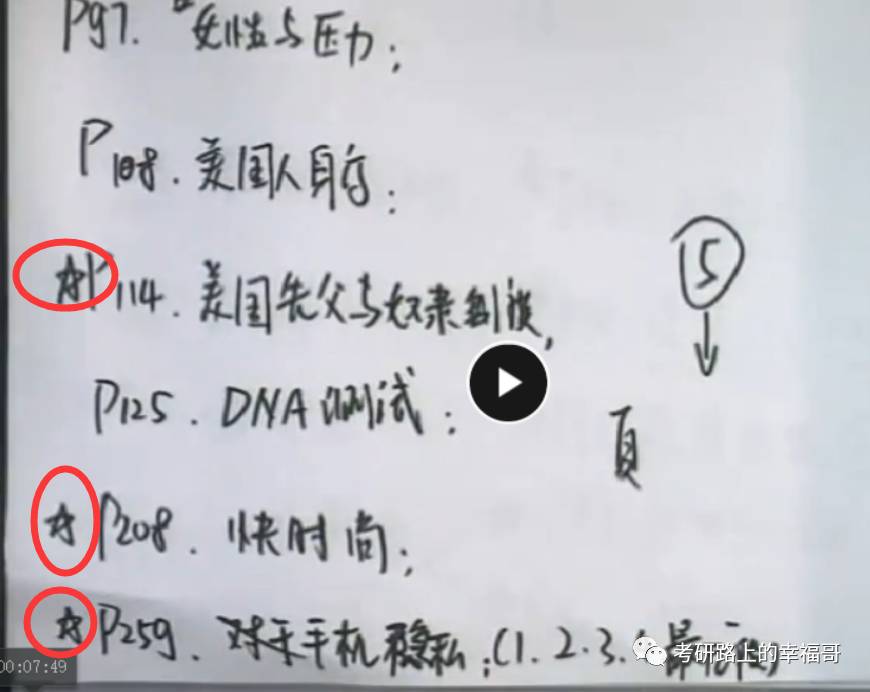 P97. 女性与压力;
P108. 美国人身高;
☆P114. 美国先父与奴隶制度,
5
↓
P125. DNA测试;
页
☆P208. 快时尚;
☆P259. 对于手机隐私;(1.2.3.
00:07:49
考研路上的幸福哥